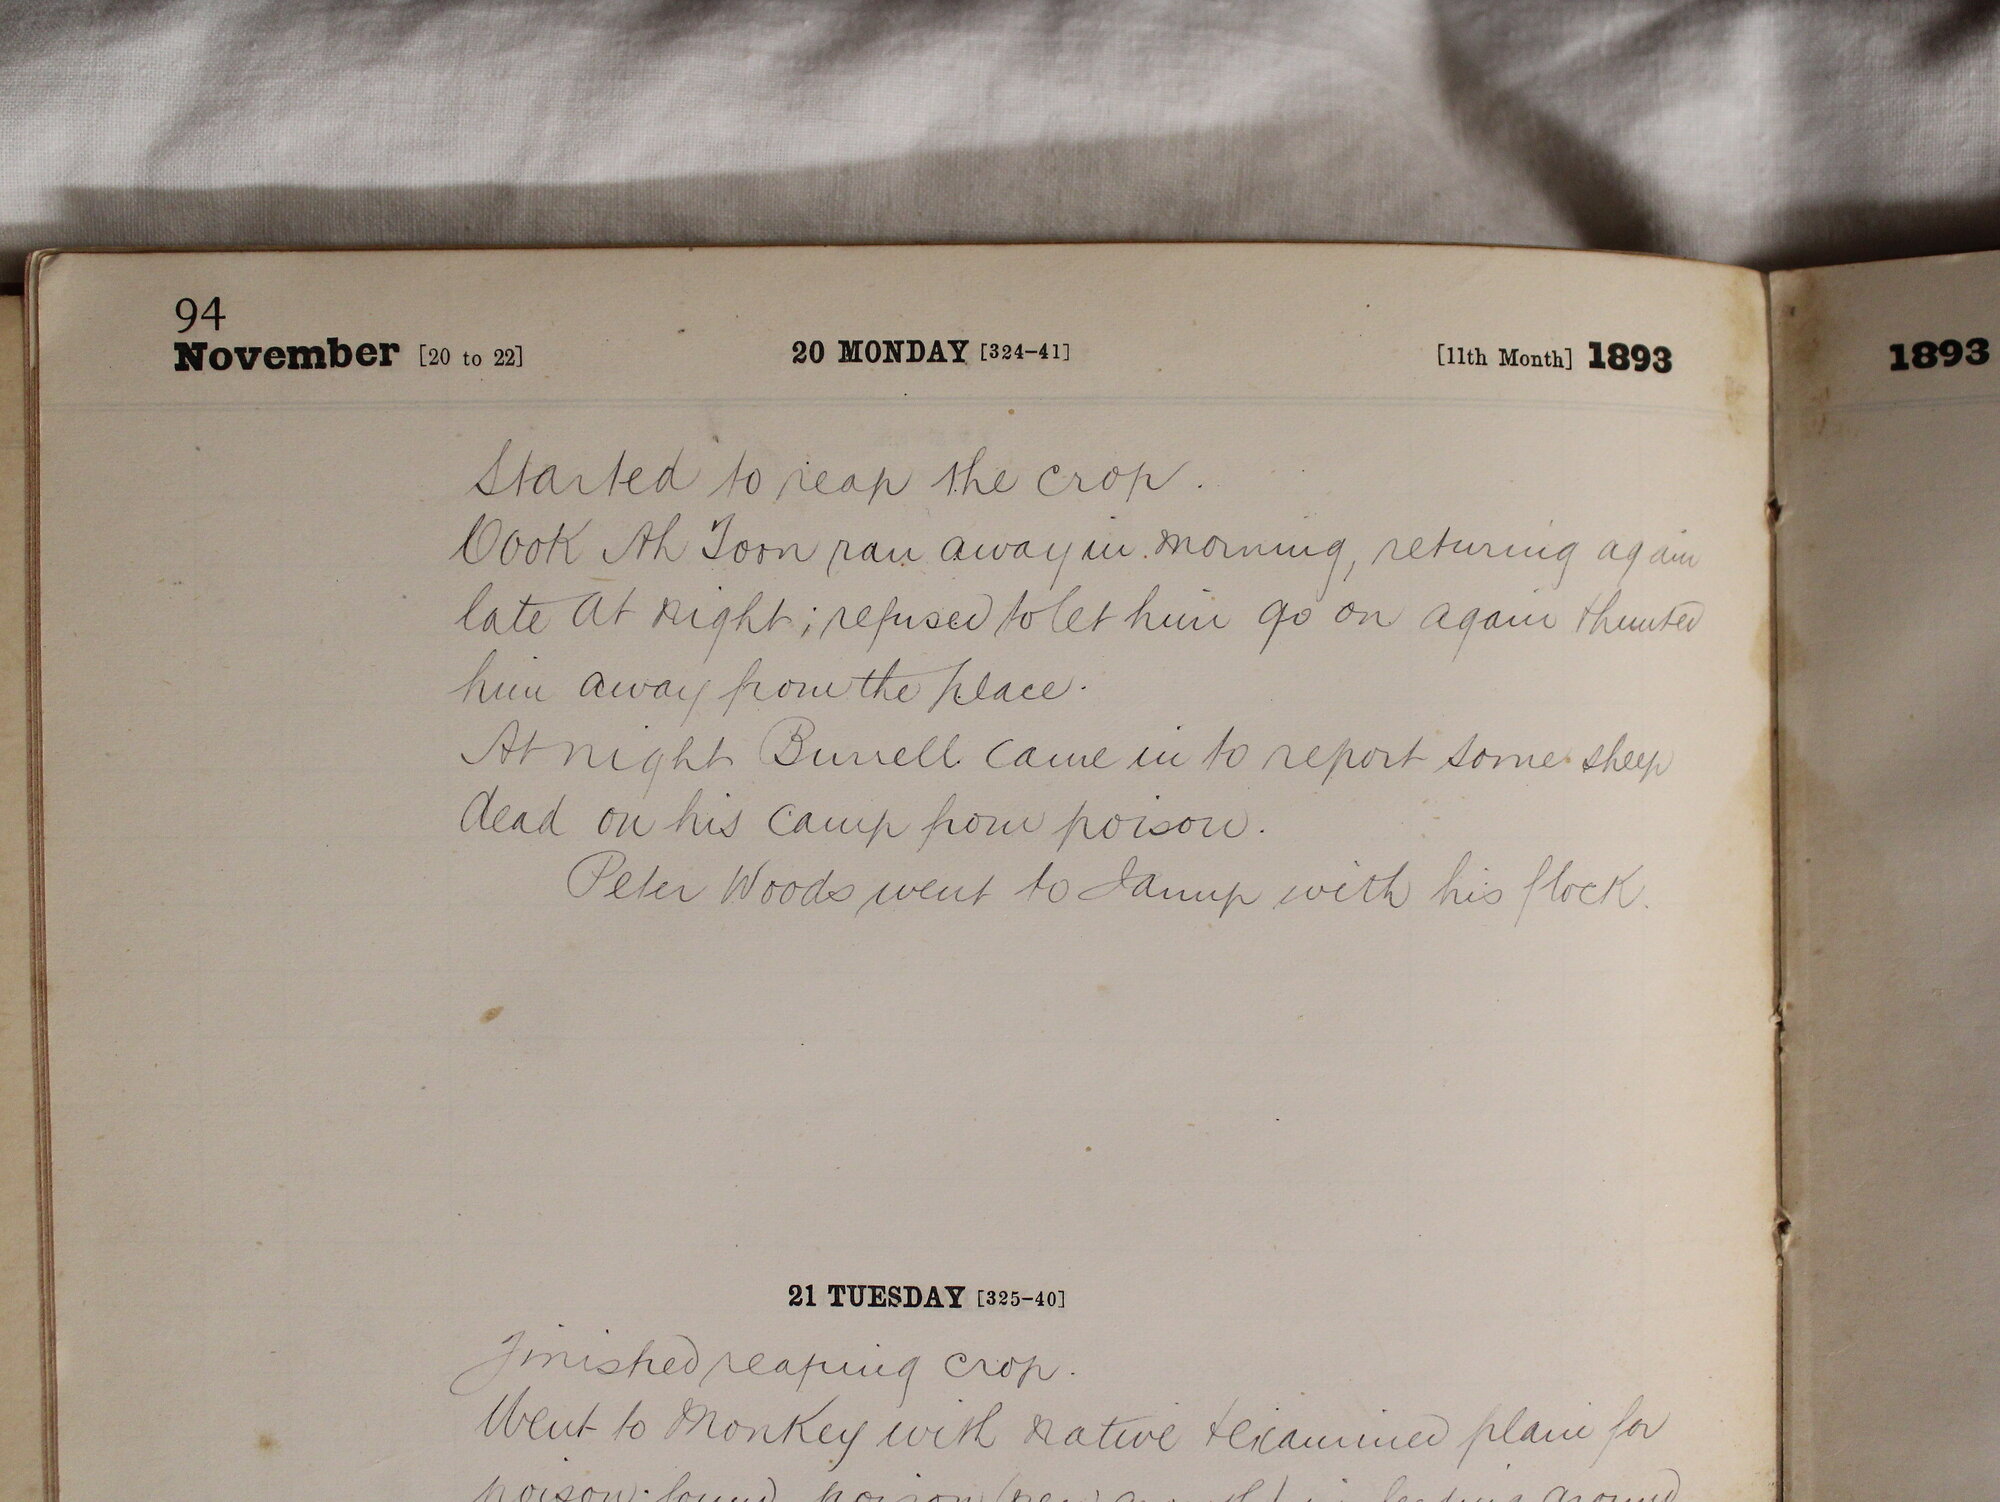 94
November [20 to 22] 20 MONDAY [324-41] [11th Month] 1893
1893
Started to reap the crop.
Cook Ah Toon ran away in morning, returing again
late at night; refused to let him go on again & hunted
him away from the place.
At night Burrell came in to report some sheep
dead on his camp from poison.
Peter Woods went to Jamup with his flock.
21 TUESDAY [325-40]
Finished reaping crop.
Went to Monkey with native & examined plain for
poison: found poison
around